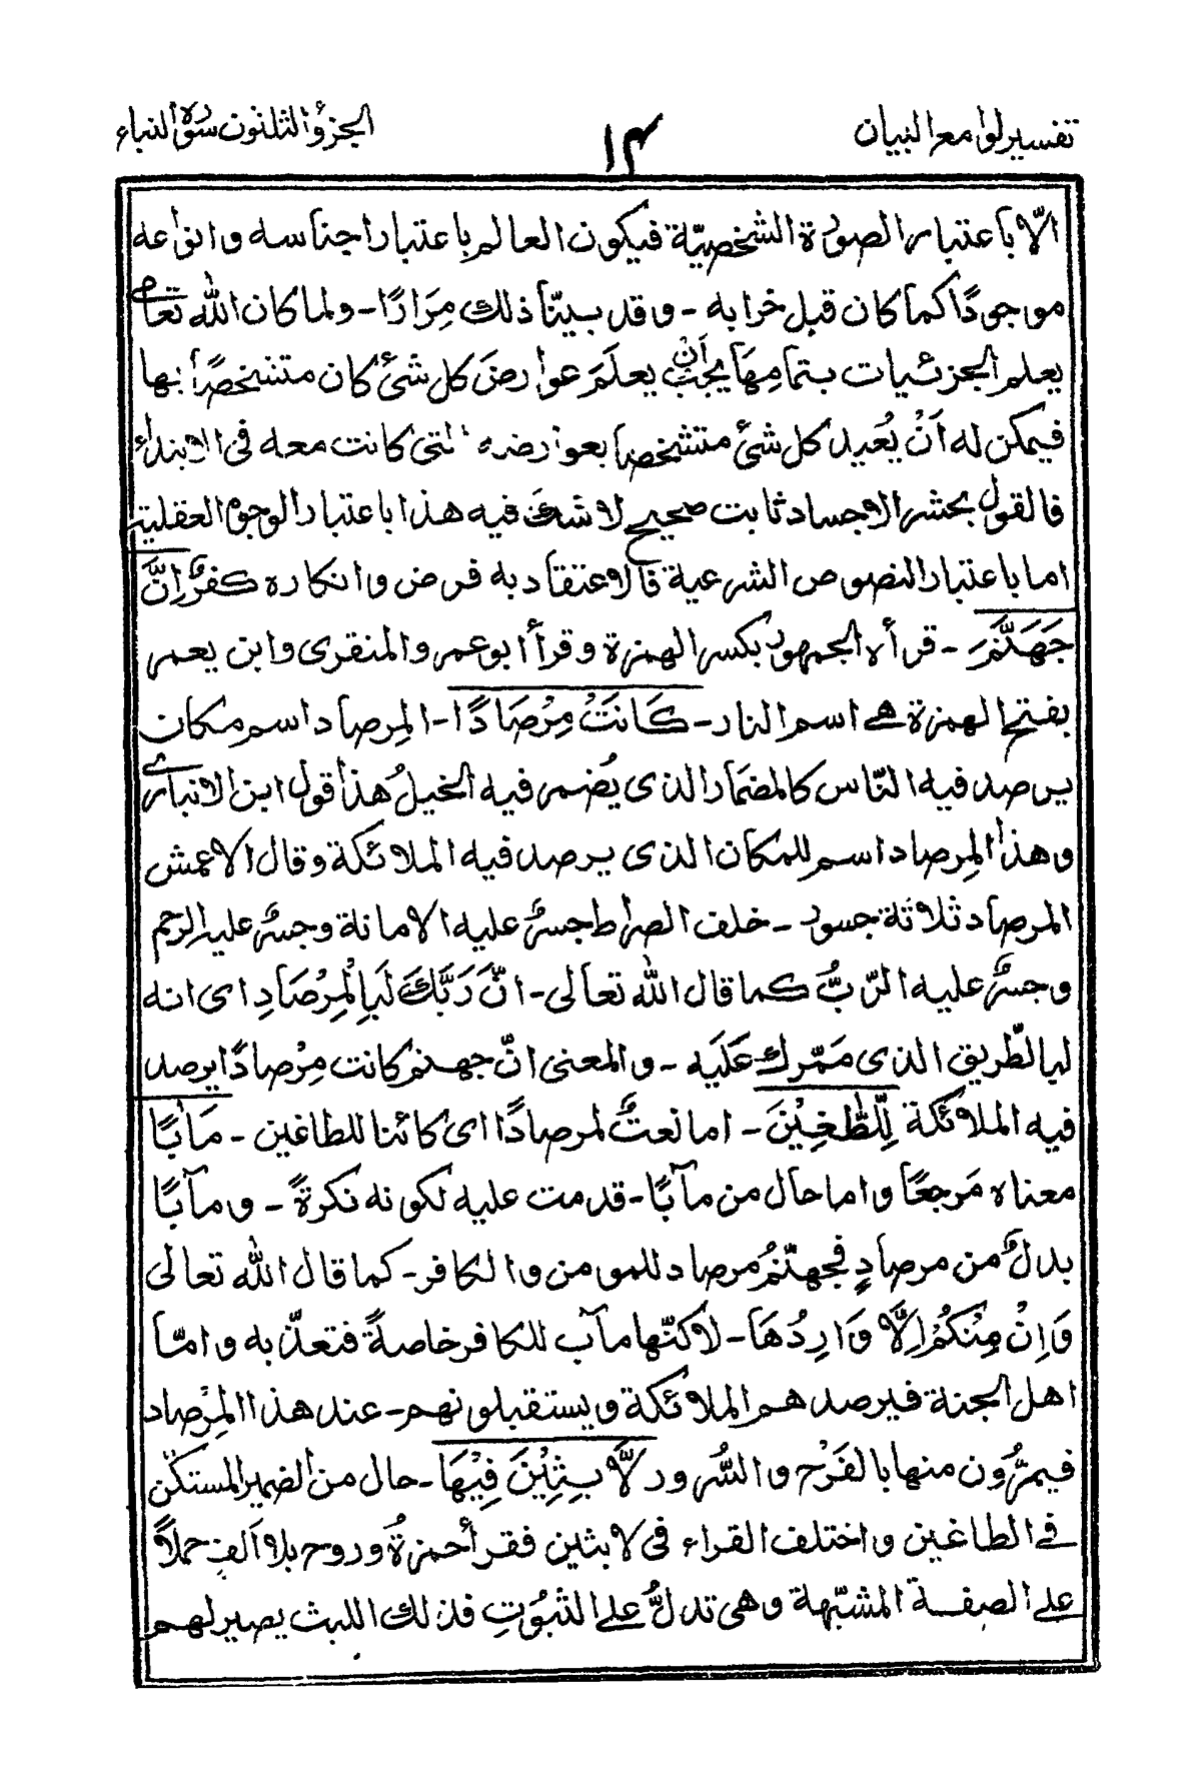 تفسير لوامع البيان
١٣
الجزؤ الثلثون سورة النباء
الّا باعتبار الصورة الشخصيّة فيكون العالم باعتبار اجناسه وانواعه
موجودًا كما كان قبل خرابه - وقد بيّنا ذلك مِرَارًا - ولما كان الله تعالى
يعلم الجزئيات بتمامِهَا يجب اَنْ يعلَمَ عوارضَ كل شئ كان متشخصًا بها
فيمكن له اَنْ يُعيد كل شئ متشخصا بعوارضه التى كانت معه فى الابتداء
فالقول بحشر الاجساد ثابت صحيح لا شكَ فيه هذا باعتبار الوجوه العقلية
اما باعتبار النصوص الشرعية فالاعتقاد به فرض وانكاره كفرٌ اِنَّ
جَهَنَّمَ - قرأه الجمهور بكسر الهمزة وقرأ ابو عمر والمنقرى وابن يعمر
بفتح الهمزة هے اسم النار - كَانَتْ مِرْصَادًا - المِرصاد اسم مكان
يرصد فيه النّاس كالمضمار الذى يُضمر فيه الخيلُ هذا قول ابن الانبارى
وهذا المِرصاد اسم للمكان الذى يرصد فيه الملائكة وقال الاعمش
المرصاد ثلاثة جسور - خلف الصراط جسرٌ عليه الامانة وجسرٌ عليه الرحم
وجسرٌ عليه الرّبُّ كما قال الله تعالى - انَّ رَبَّكَ لَبِالْمِرْصَادِ اى انه
لبالطّريق الذى مَمّرك عَلَيه - والمعنى انّ جهنم كانت مِرْصادًا يرصد
فيه الملائكة لِّلطّٰغِيْنَ - اما نعتٌ لمرصادًا اى كائنا للطاغين - مَاٰبًا
معناه مَرجعًا واما حال من مآبًا - قدمت عليه لكونه نكرةً - ومآبًا
بدلٌ من مرصادٍ فجهنّمُ مرصاد للمومن والكافر - كما قال الله تعالى
وَاِنْ مِنْكُمْ اِلَّا وَارِدُهَا - لاكنّها مآب للكافر خاصةً فتعذّبه وامّا
اهل الجنة فيرصد هم الملائكة ويستقبلونهم - عند هذا المِرْصاد
فيمرُّون منها بالفَرْح والسُّرور لّابِثِيْنَ فِيْهَا - حال من الضمير المستكن
فے الطاغين واختلف القراء فى لابثين فقرأ حمزةُ وروح بلا اَلفٍ حملاً
علے الصفة المشبّهة وهى تدلُّ علے الثبُوتِ فذلك اللبث يصير لهم